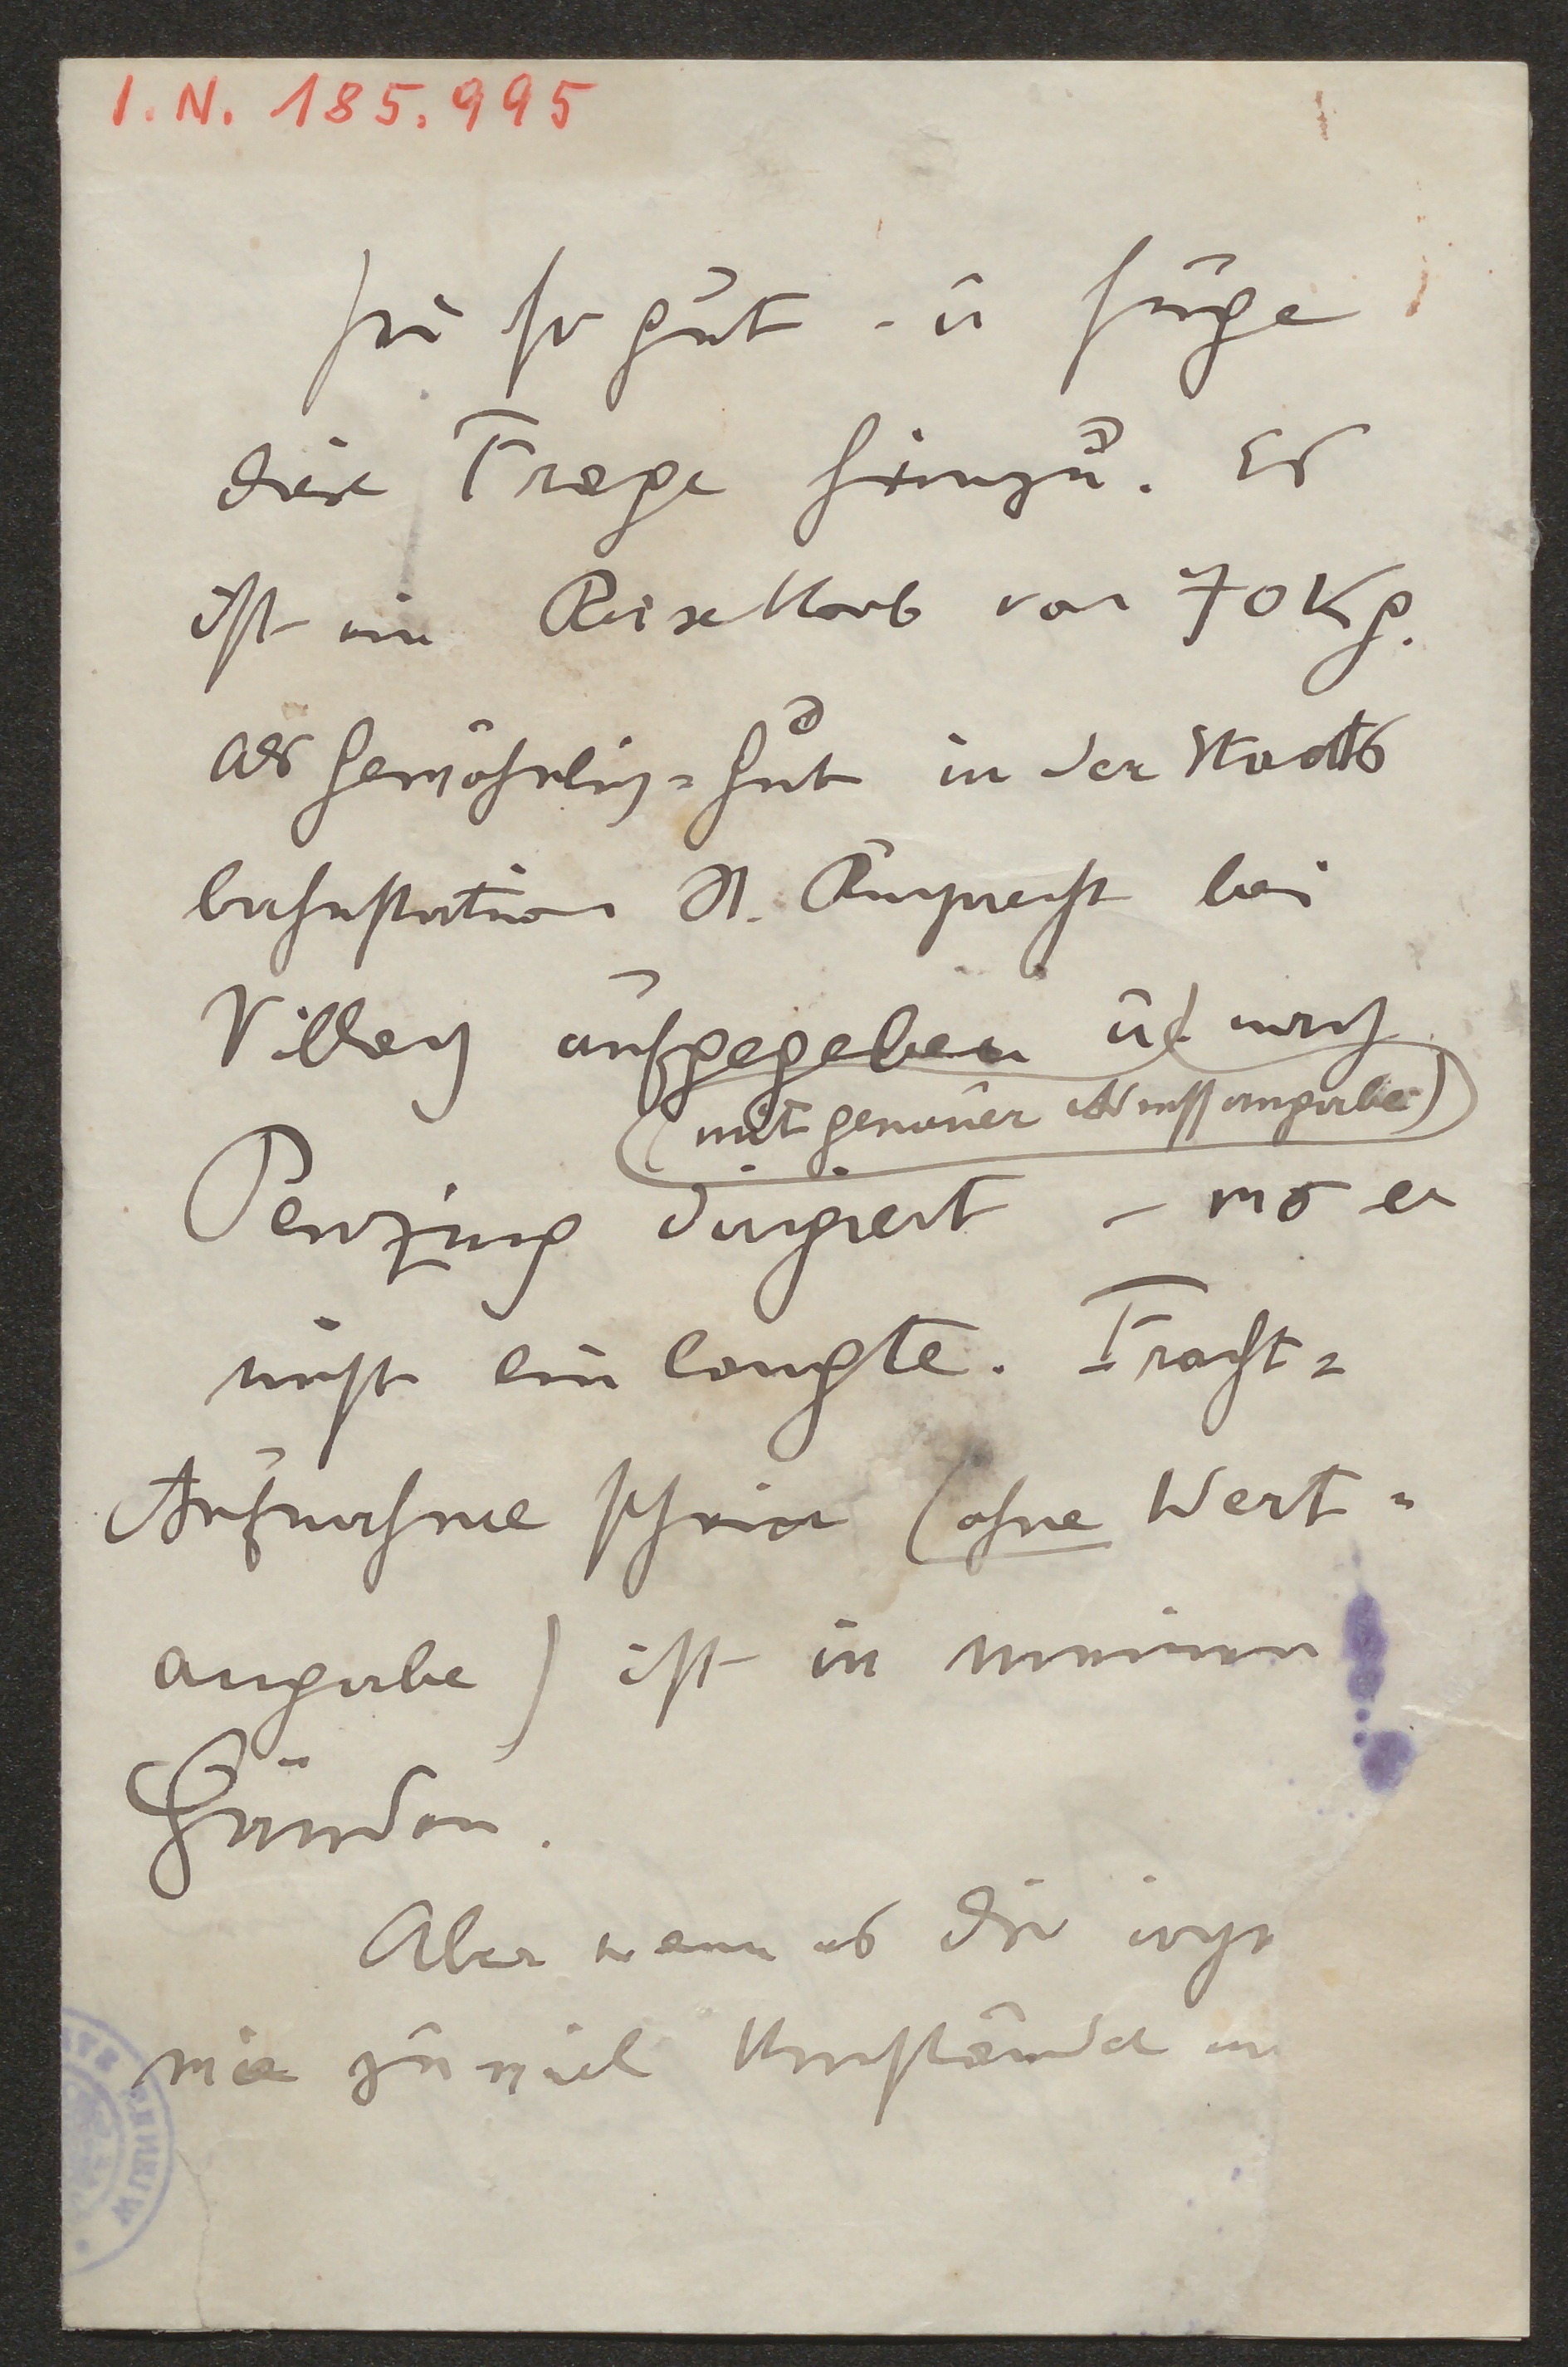 I.N. 185.995
sei so gut - u füge
diese Frage hinzu. Es
ist ein Reisekorb von 70 Kg.
als Gewöhnlich=Gut in der Staats
bahnstation St. Ruprecht bei
Villach aufgegeben u nach
(mit genauer Adressangabe)
Penzing dirigiert – wo er
nicht einlangte. Fracht=
Aufnahmeschein (ohne Wert=
angabe) ist in meinen
Händen.
Aber wenn es dir irgend
wie zu viel Umstände
WIENER